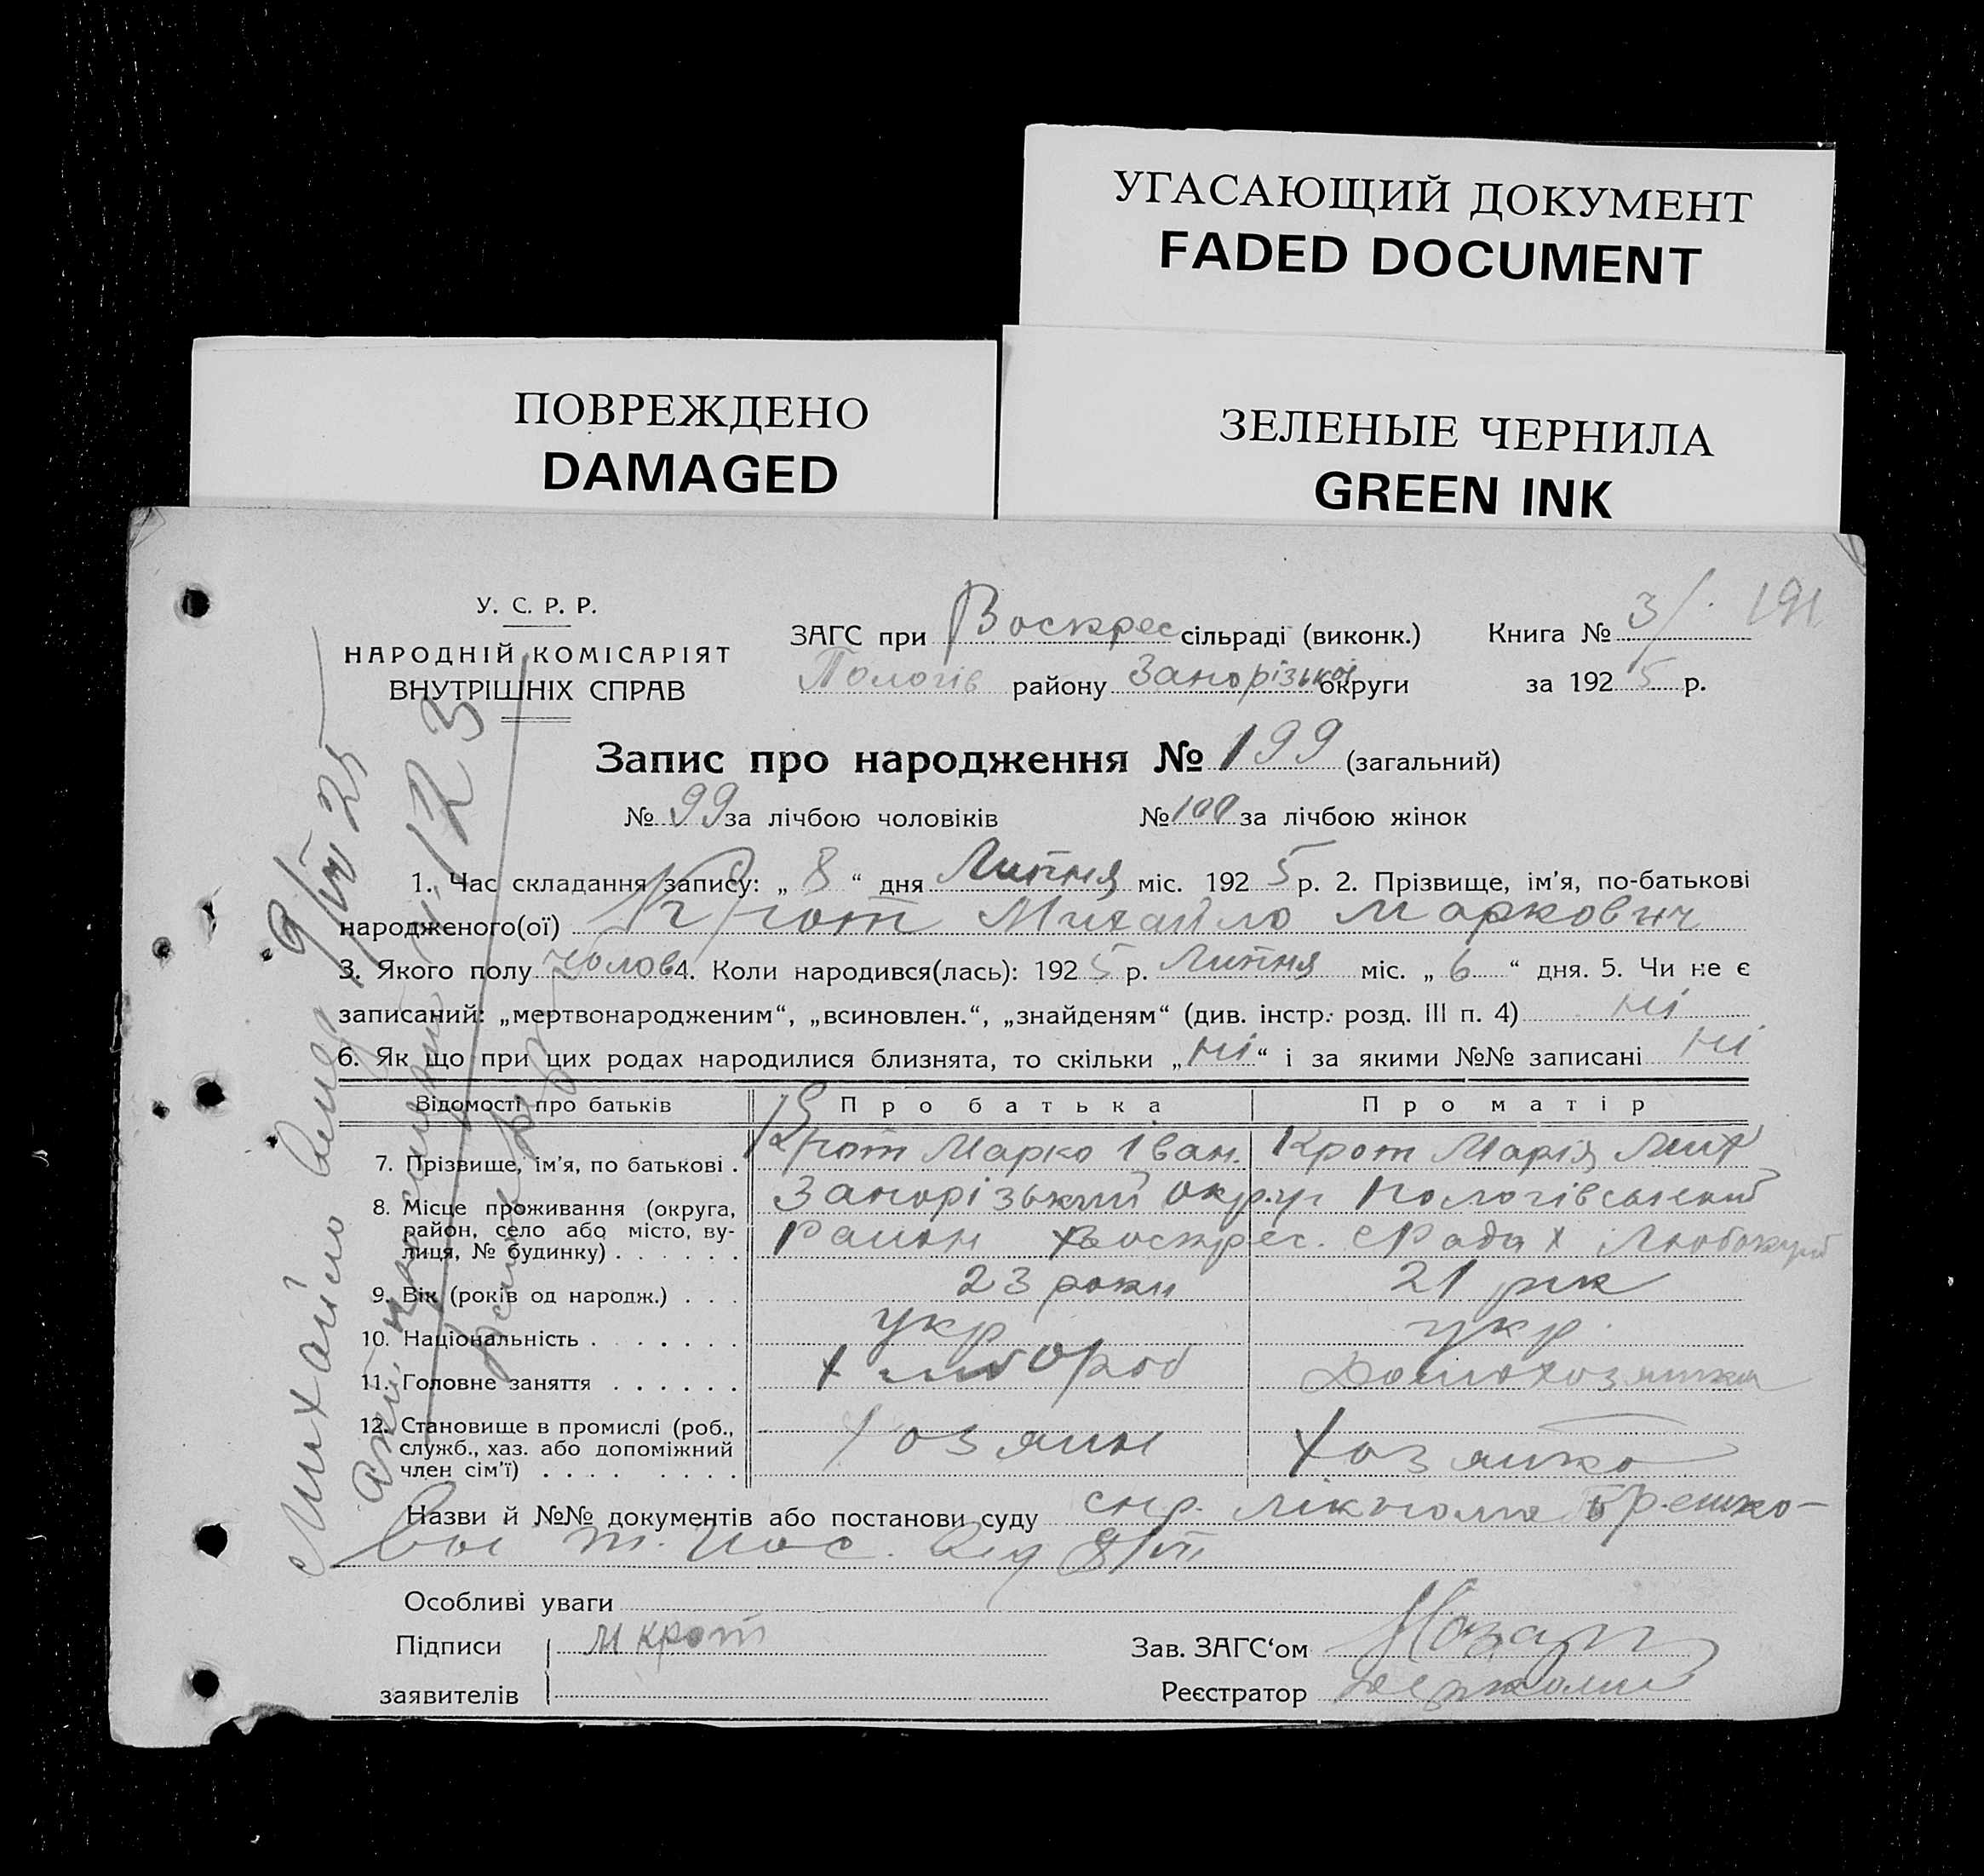 УГАСАЮЩИЙ ДОКУМЕНТ
FADED DOCUMENT
ПОВРЕЖДЕНО
DAMAGED
ЗЕЛЕНЫЕ ЧЕРНИЛА
GREEN INK
У. С. Р. Р.
НАРОДНІЙ КОМІСАРІЯТ
ВНУТРІШНІХ СПРАВ
ЗАГС при Воскрес сільраді (виконк.)
Пологів району Запорізької округи
Книга № 3/. 191
за 1925 р.
Запис про народження № 199 (загальний)
№ 99 за лічбою чоловіків № 100 за лічбою жінок
1. Час складання запису: „ 8 “ дня Липня міс. 1925 р. 2. Прізвище, ім'я, по-батькові
народженого(ої) Крот Михайло Маркович
3. Якого полу Чолов 4. Коли народився(лась): 1925 р. Липня міс. „ 6 “ дня. 5. Чи не є
записаний: „мертвонародженим“, „всиновлен.“, „знайденям“ (див. інстр. розд. III п. 4) ні
6. Як що при цих родах народилися близнята, то скільки „ні“ і за якими №№ записані ні
Відомості про батьків Про батька Про матір
7. Прізвище, ім'я, по батькові . Крот Марко Іван. Крот Марія
8. Місце проживання (округа, район, село або місто, вулиця, № будинку) . . . . . . Запорізький округ Пологівський
Район Воскрес. сРада х
9. Вік (років од народж.) . . . 23 роки 21 рік
10. Національність . . . . . . . укр укр.
11. Головне заняття . . . . . . хлібороб Домохозяйка
12. Становище в промислі (роб., служб., хаз. або допоміжний член сім'ї) . . . . . . . . Хозяин Хозяйка
Назви й №№ документів або постанови суду
від 8/VII
Особливі уваги
Підписи М Крот
заявителів
Зав. ЗАГС‘ом
Реєстратор
Михайло
9/VII 25
123